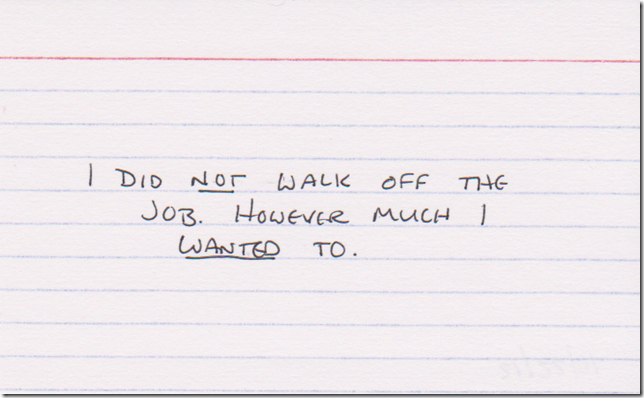 I DID NOT WALK OFF THE
JOB. HOWEVER MUCH I
WANTED TO.